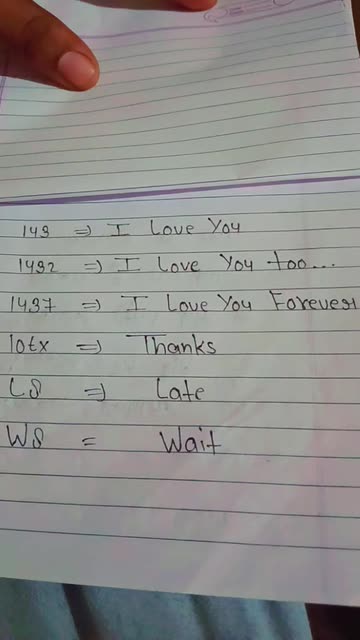 143 => I Love You
1432 => I Love You too...
1437 => I Love You Forever
10tx => Thanks
L8 => Late
W8 = Wait